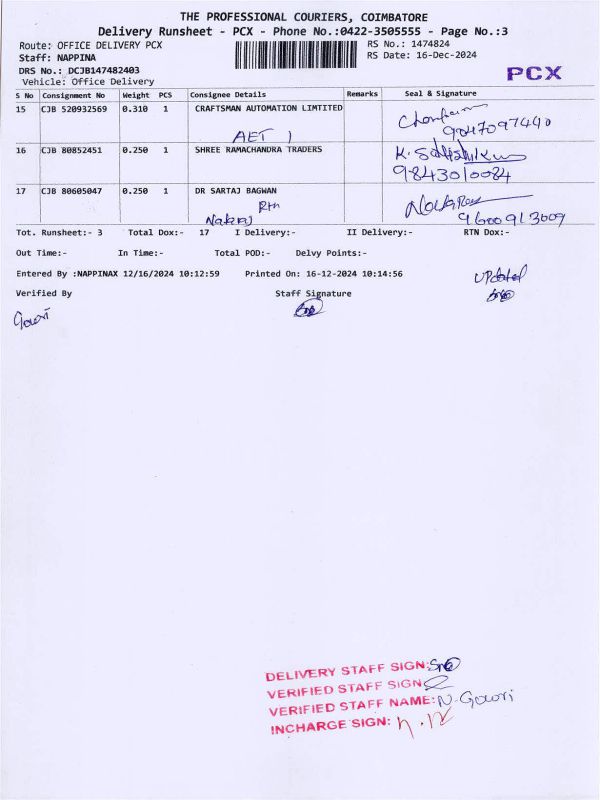 THE PROFESSIONAL COURIERS, COIMBATORE
Delivery Runsheet - PCX - Phone No.:0422-3505555 - Page No.:3
Route: OFFICE DELIVERY PCX
RS No.: 1474824
Staff: NAPPINA
RS Date: 16-Dec-2024
DRS No.: DCJB147482403
PCX
Vehicle: Office Delivery
S No Consignment No Weight PCS Consignee Details Remarks Seal & Signature
15 CJB 520932569 0.310 1 CRAFTSMAN AUTOMATION LIMTITED
9047097440
AET 1
16 CJB 80852451 0.250 1 SHREE RAMACHANDRA TRADERS
K. Sathishkum
9843010084
17 CJB 80605047 0.250 1 DR SARTAJ BAGWAN
9600913009
Tot. Runsheet:- 3 Total Dox:- 17 I Delivery:- II Delivery:- RTN Dox:-
Out Time:- In Time:- Total POD:- Delvy Points:-
Entered By :NAPPINAX 12/16/2024 10:12:59 Printed On: 16-12-2024 10:14:56
Updated
Verified By Staff Signature
Gowri
DELIVERY STAFF SIGN:
VERIFIED STAFF SIGN
VERIFIED STAFF NAME: N. Gowri
INCHARGE SIGN: